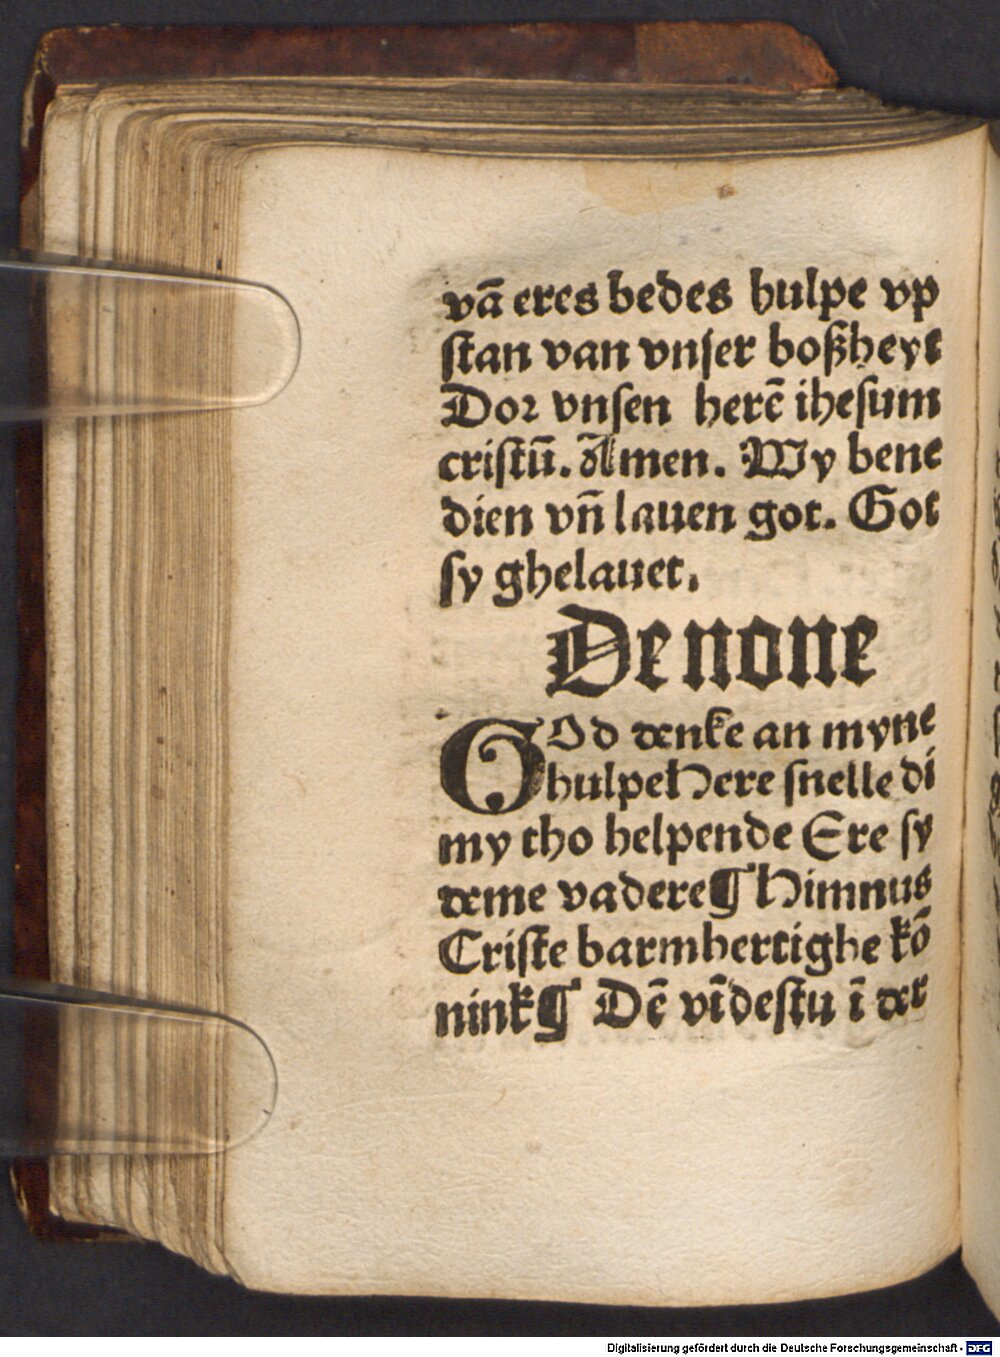 vā eres bedes hulpe vp
ſtan van vnſer boßheyt
Dor vnſen herē iheſum
criſtū. Amen. Wy bene
dien vn̄ lauen got. Got
ſy ghelauet.
De none
GOd denke an myne
hulpe Here ſnelle di
my tho helpende Ere ſy
deme vadere¶ Himnus
Criſte barmhertighe kō
nink¶ Dē vīdeſtu ī der
Digitalisierung gefördert durch die Deutsche Forschungsgemeinschaft - DFG